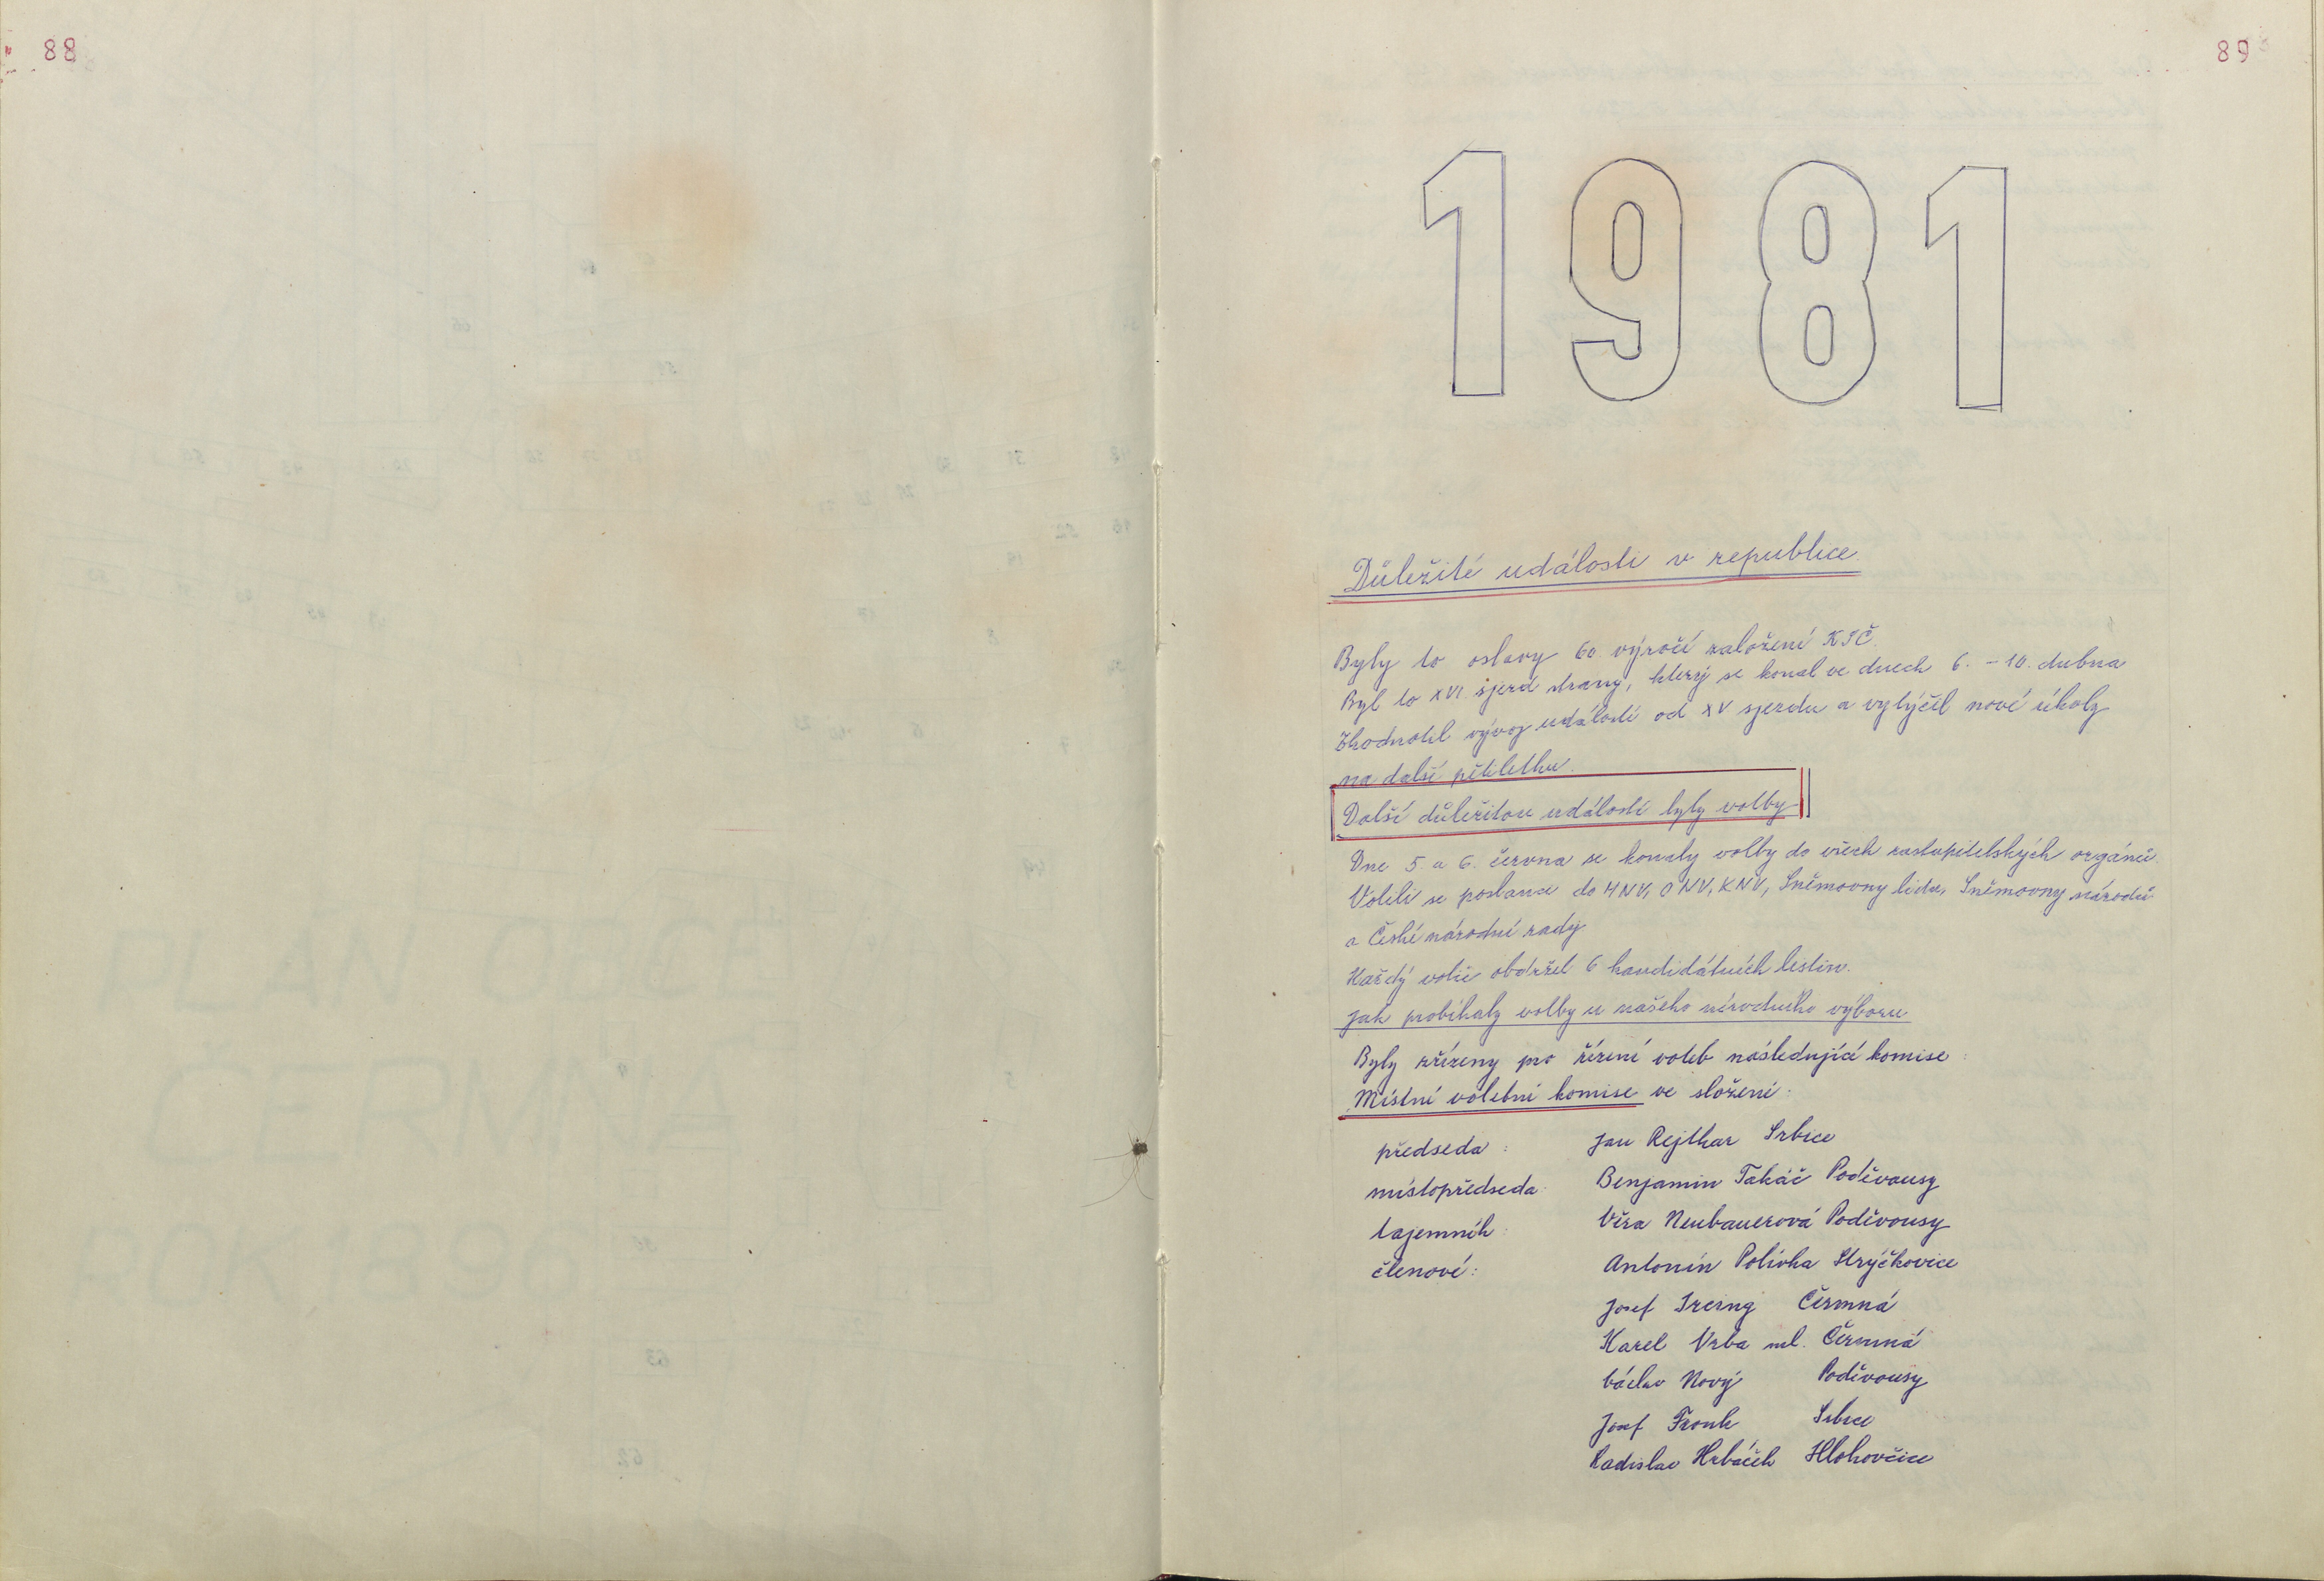 88
89
1981
Důležité události v republice
Byly to oslavy 60 výročí založení KSČ.
Byl to XVI. sjezd strany, který se konal ve dnech 6. - 10. dubna
Zhodnotil vývoj událostí od XV sjezdu a vytýčil nové úkoly
na další pětiletku.
Další důležitou událostí byly volby
Dne 5. a 6. června se konaly volby do všech zastupitelských orgánů.
Volili se poslanci do MNV, ONV, KNV, Sněmovny lidu, Sněmovny národů
a České národní rady
Každý volič obdržel 6 kandidátních listin.
Jak probíhaly volby u našeho národního výboru
Byly zřízeny pro řízení voleb následující komise :
Místní volební komise ve složení :
předseda : Jan Rejthar Srbice
místopředseda Benjamin Takáč Poděvousy
tajemník : Věra Neubauerová Poděvousy
členové : Antonín Polívka Strýčkovice
Josef Ircing Čermná
Karel Vrba ml. Čermná
Václav Nový Poděvousy
Josef Fronk Srbice
Ladislav Hrbáček Hlohovčice